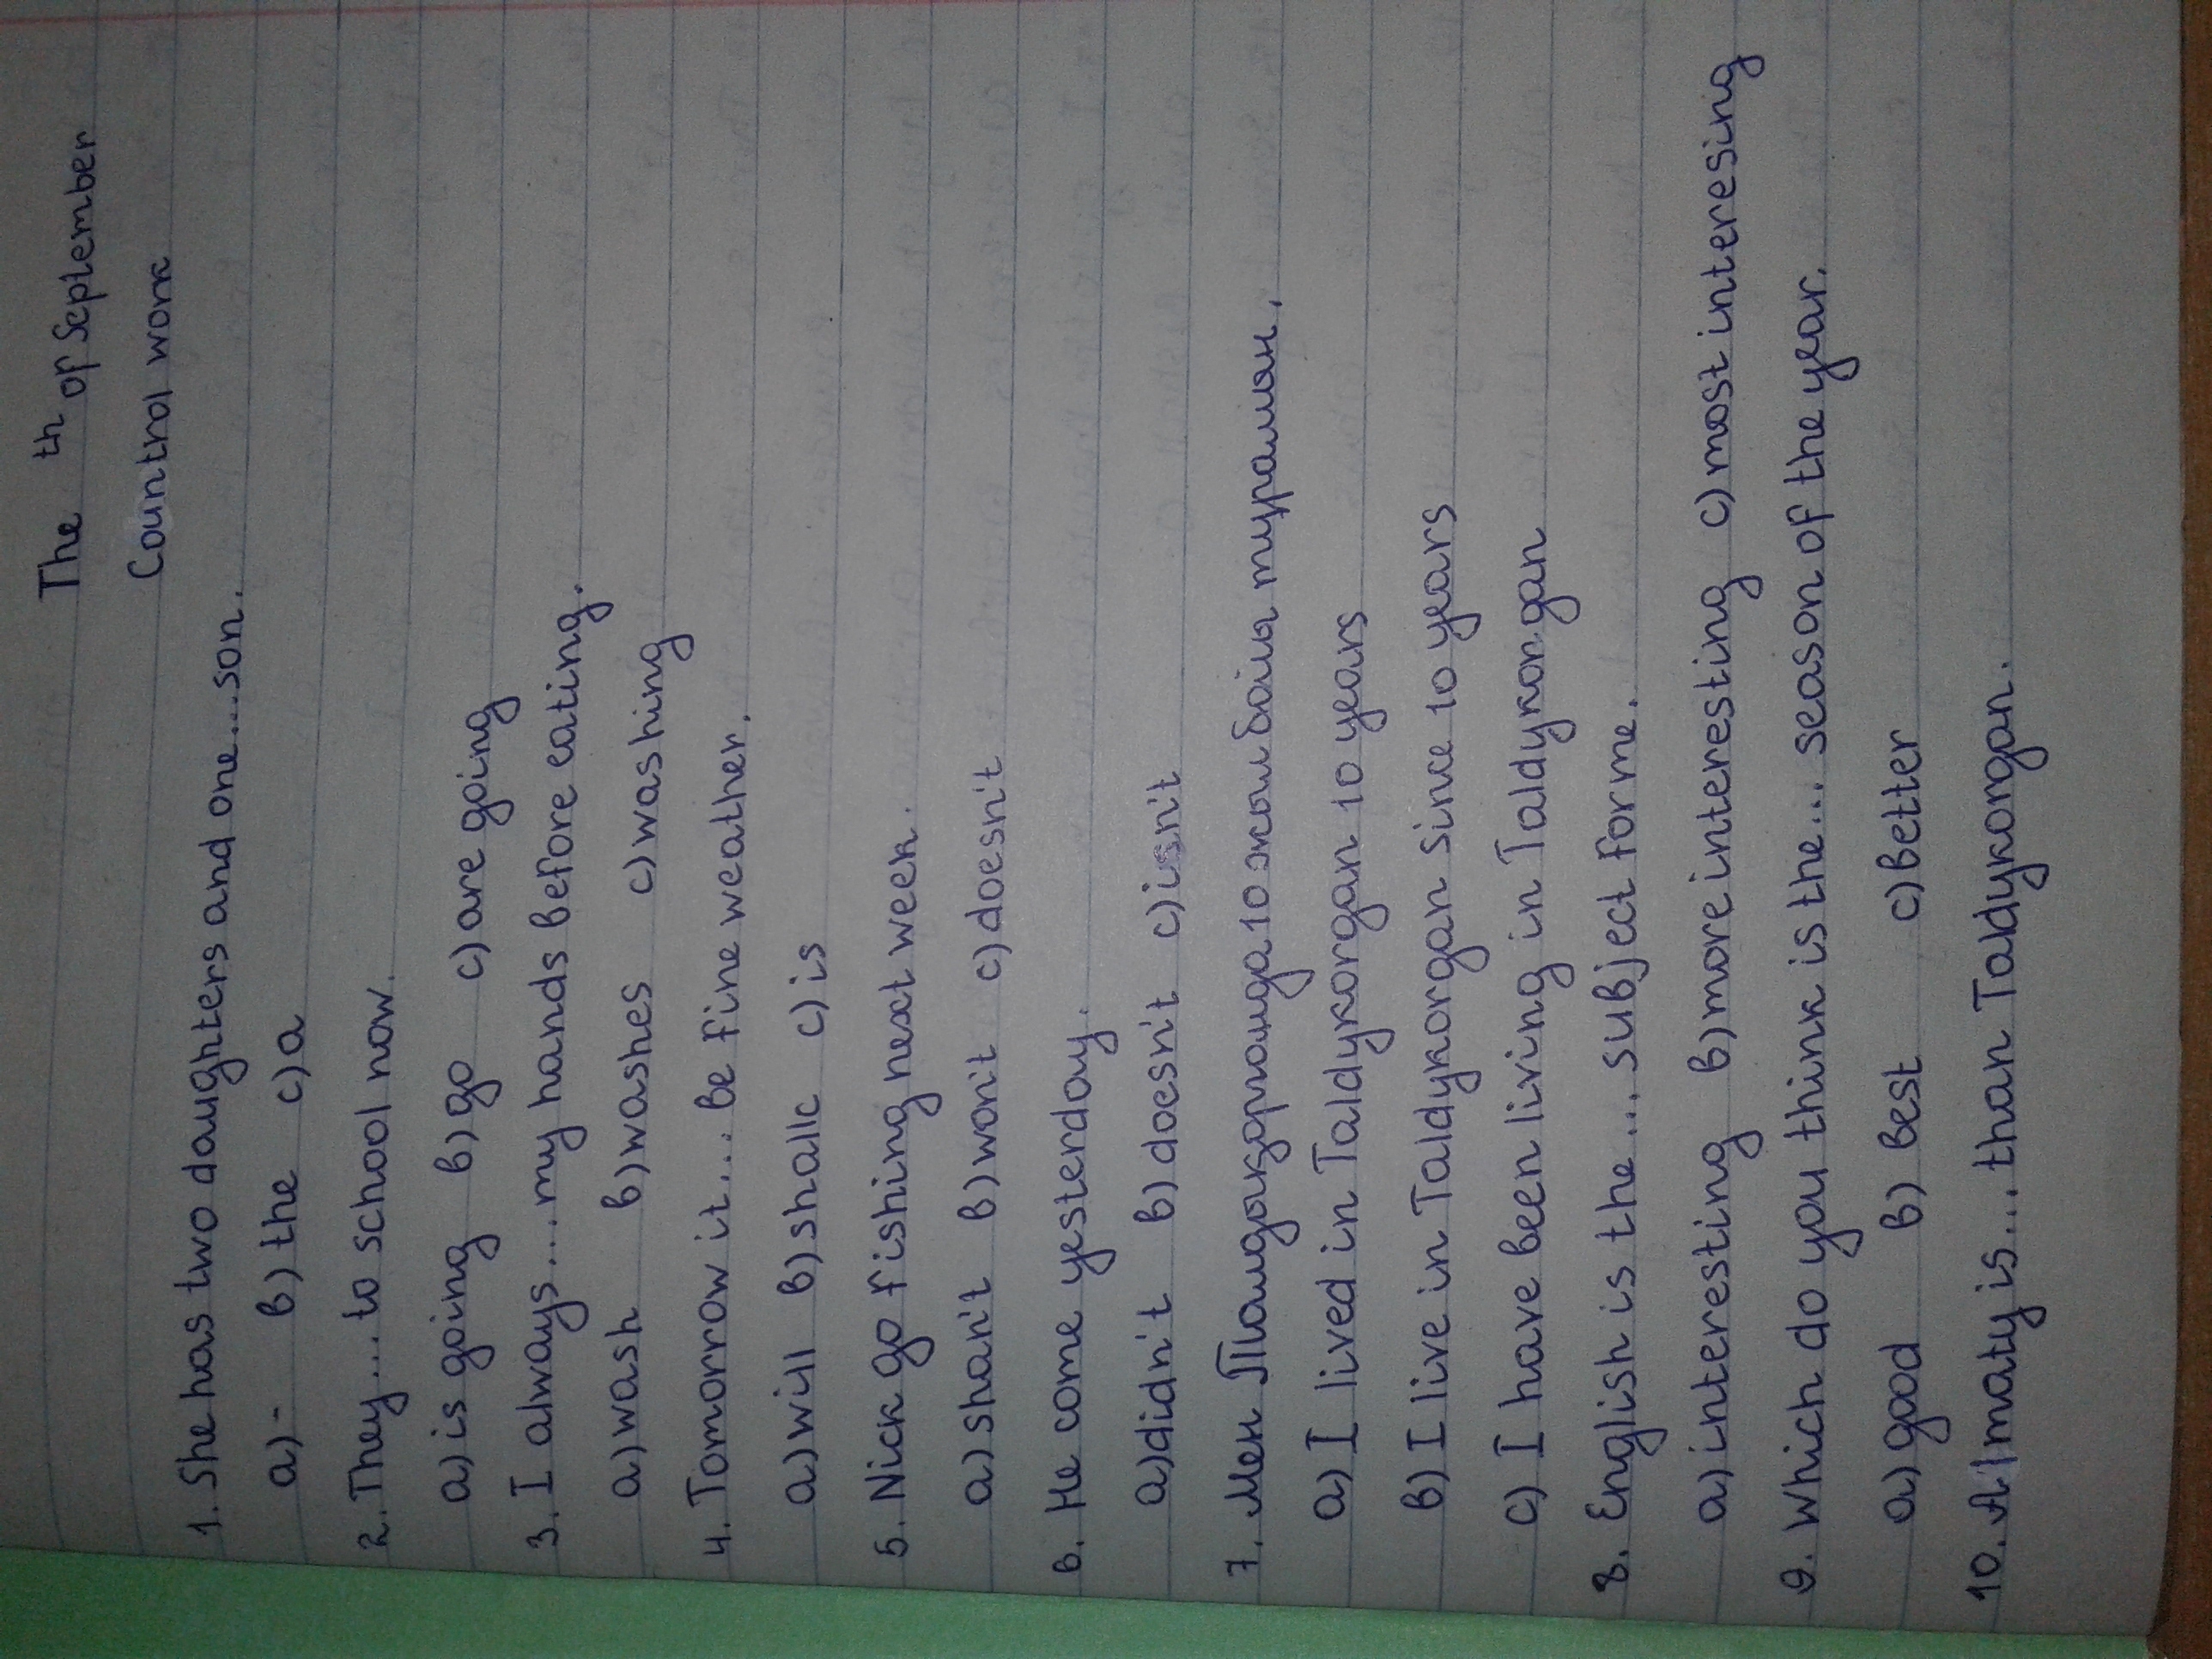 The th of September
Countrol work
1. She has two daughters and one...son.
a)- b) the c) a
2. They.... to school now.
a) is going b) go c) are going
3. I always.... my hands before eating.
a) wash b) washes c) washing
4. Tomorrow it.... be fine weather.
a) will b) shallc c) is
5. Nick go fishing next week.
a) shan't b) won't c) doesn't
6. He come yesterday.
a) didn't b) doesn't c) isn't
7. Мен Талдықорғанда 10 жыл бойы тұрамын.
a) I lived in Taldykorgan 10 years
b) I live in Taldykorgan since 10 years
c) I have been living in Taldykorongan
8. English is the.... subject for me.
a) interesting b) more interesting c) most interesing
9. Which do you think is the... season of the year.
a) good b) best c) better
10. Almaty is... than Taldykorgan.